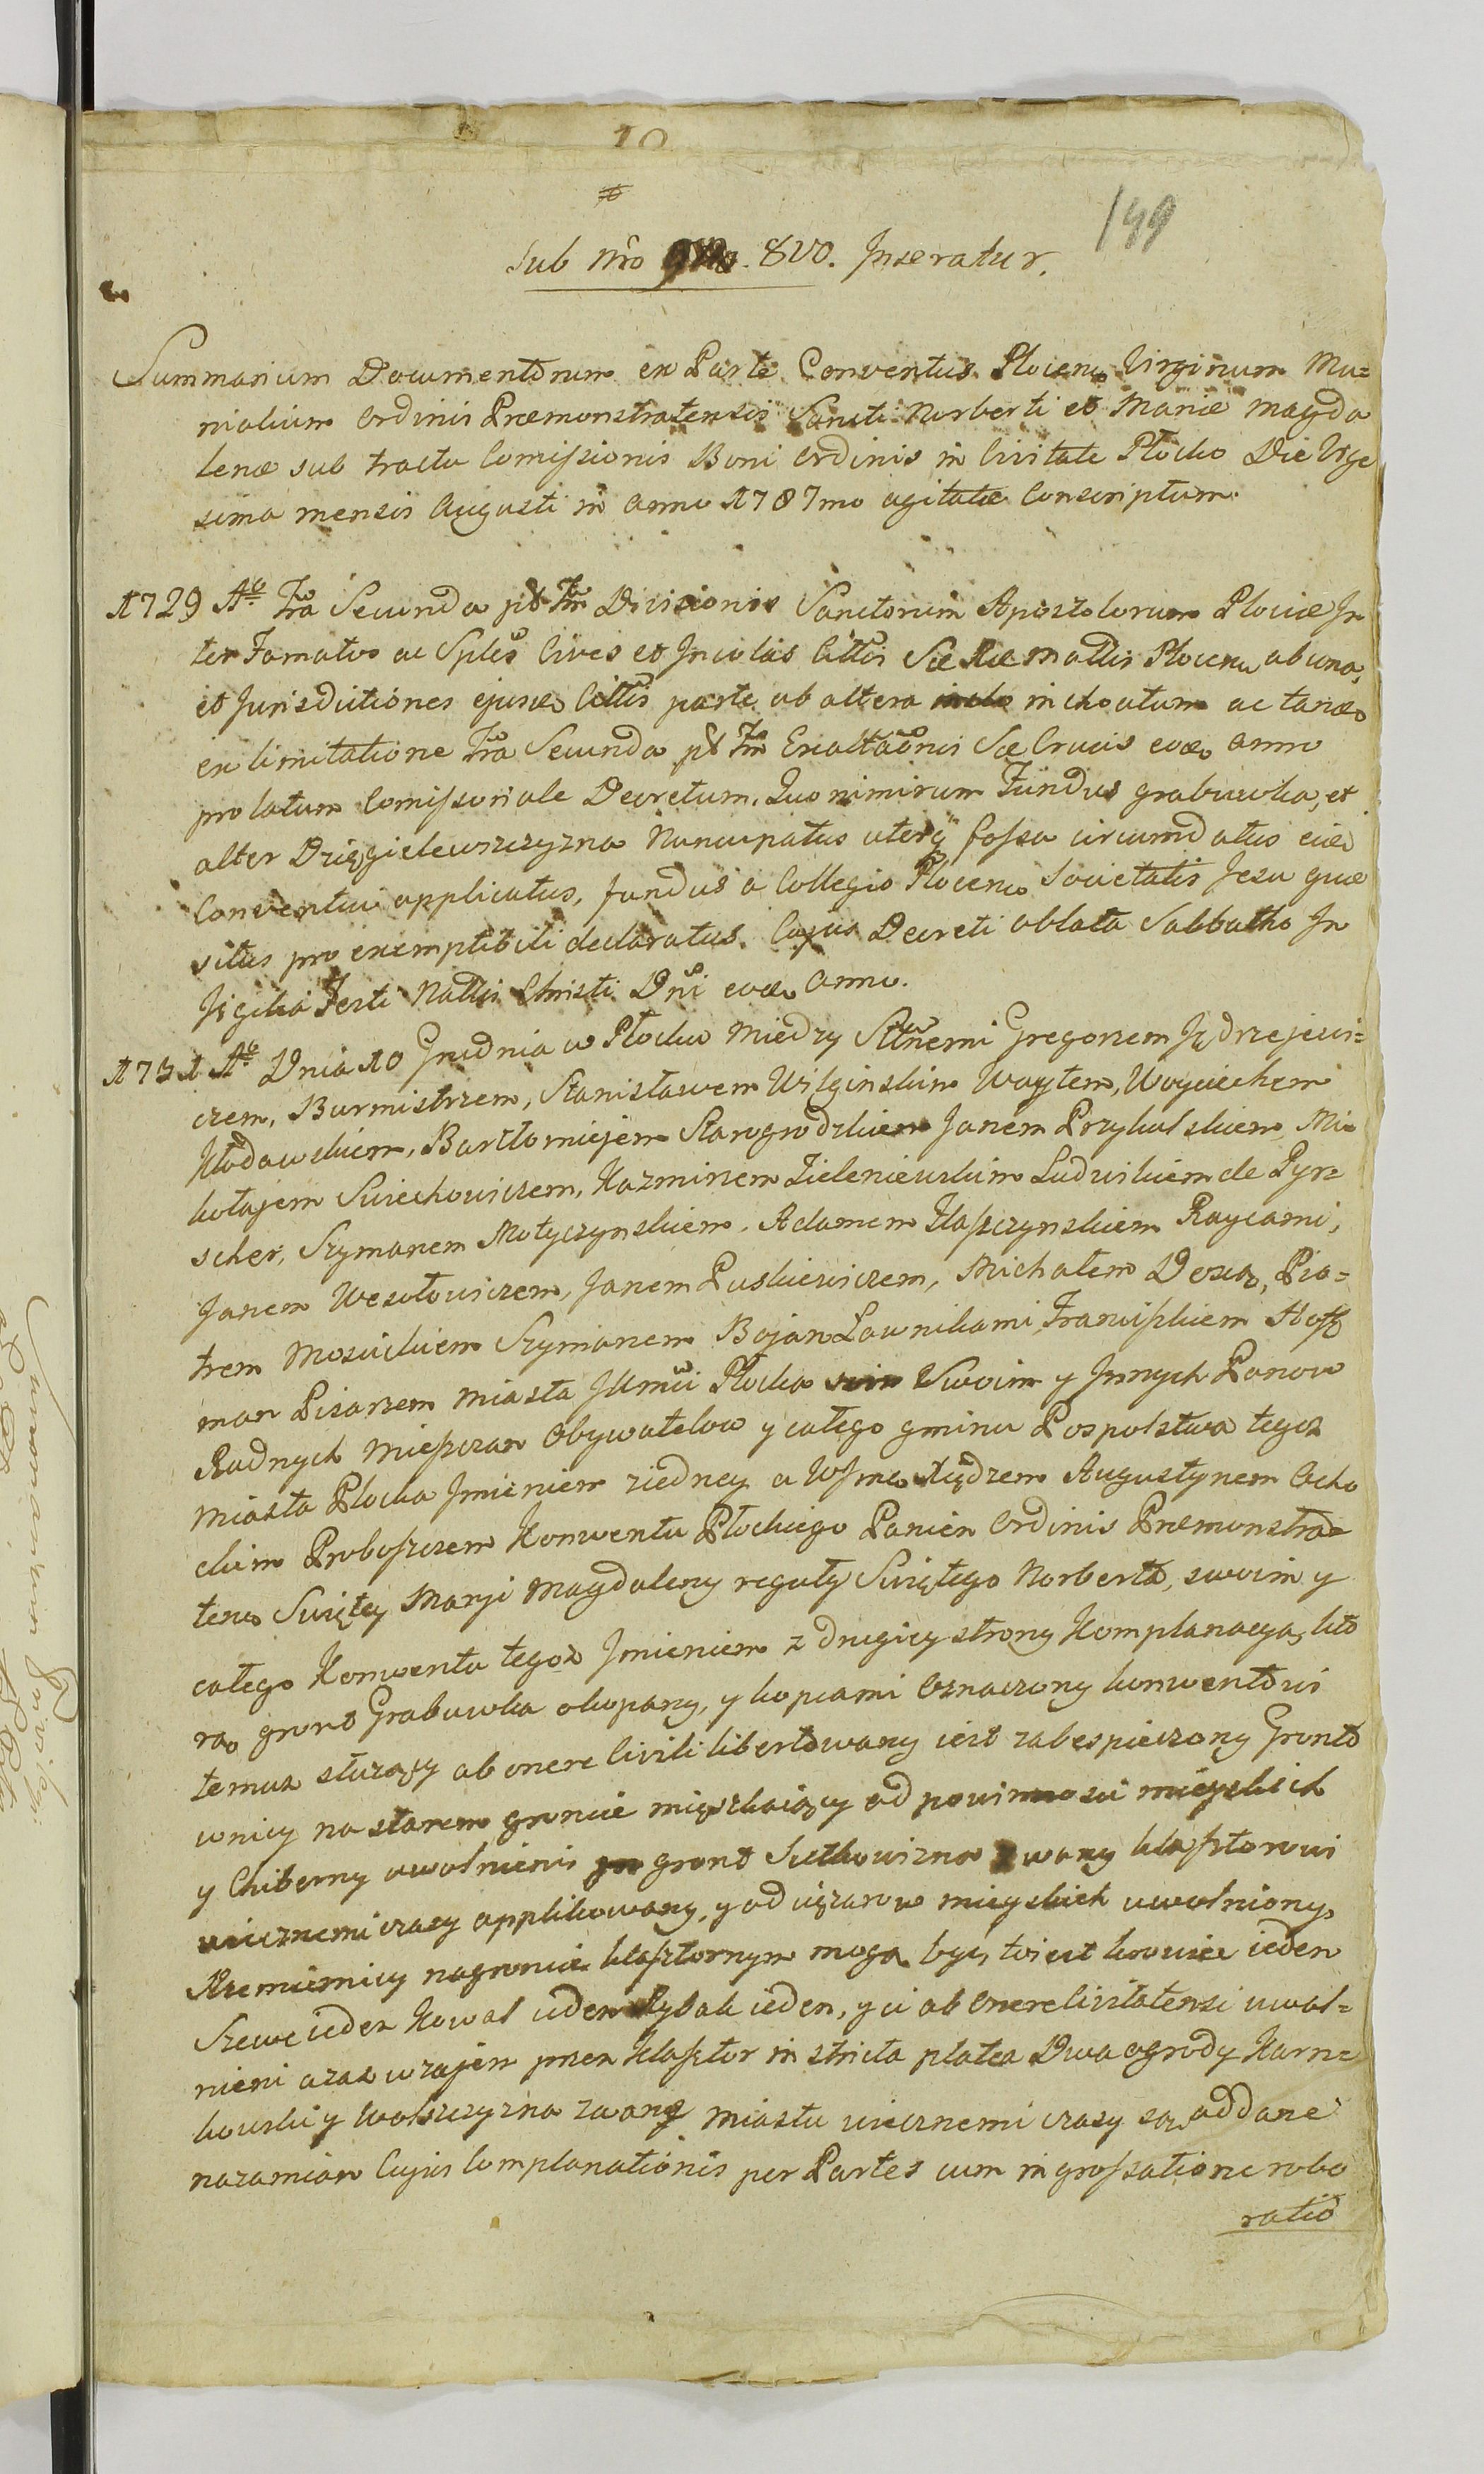 10
199
Sub Nro 8vo. Inseratur.
Summarium Documentorum ex Parte Conventus Plocen Virginum Mo=
nialium Ordinis Præmonstratensis Sancti Norberti et Mariæ Magda
lenæ sub tractu Comissionis Boni Ordinis in Civitate Płocko Die Vige
sima mensis Augusti in Anno 1787mo agitatæ Conscriptum.
1729 Ao Fra Secunda pt Fm Divisionis Sanctorum Apostolorum Plociæ In
ter Famatos ac Sples Cives et Incolas Cittis Sæ Ræ Mattis Plocen ab una,
et Jurisdictiones ejusd Cittis parte ab altera inchoatum ac tand
ex limitatione Fra Secunda pt Fm Exaltaonis Sæ Crucis eod Anno
prolatum Comissoriale Decretum. Quo nimirum Fundus grabuwka, et
alter Dzięgielewszczyzna Nuncupatus uterq fossa circumdatus eid
Conventui applicatus, fundus a Collegio Plocen Societatis Jesu quæ
situs pro exemptibili declaratus. Cujus Decreti oblata Sabbatho In
Vigilia Festi Nattis Christi Dni eod Anno.
Ao Dnia 10 Grudnia w Płocku Miedzy Sttnemi Gregorzem Jędrzejewi=
czem, Burmistrzem, Stanisławem Wilginskim Woytem, Woyciechem
Kłodawskiem, Bartłomiejem Starogrodzkiem Janem Przybulskiem, Mi=
kołajem Swiechowiczem, Kazmirzem Zieleniewskim Ludwikiem de Pyr=
scher, Szymanem Motyczynskiem, Adamem Kłaszczynskiem Raycami,
Janem Wesołowiczem, Janem Puskiewiczem, Michałem Dexa, Pio=
trem Moscickiem Szymanem Bojan Ławnikami, Franciszkiem Hoff
man Pisarzem Miasta JKmci Płocka Swoim y Innych Panow
Radnych Mieszczan Obywatelow y całego gminu Pospolstwa tegoz
Miasta Płocka Imieniem ziedney a WJmc Xiędzem Augustynem Ocho
ckim Proboszczem Konwentu Płockiego Panien Ordinis Præmonstra=
ten Swiętey Maryi Magdaleny reguły Swiętego Norberta, swoim y
całego Konwentu tegoz Imieniem z drugiey strony Komplanacya, kto
ra gront Grabuwka okopany, y kopcami Oznaczony konwentowi
temuz służący ab onere Civili libertowany iest zabespieczony Gronto
wnicy na starem groncie mięszkaiący od powinnosci mieyskich
y Chiberny uwolnieni gront Sutkowizna zwany klasztorowi
wiecznemi czasy applikowany, y od cięzarow mieyskich uwolniony.
Rzemiesnicy nagroncie klasztornym moga byc, toiest krawiec ieden
Szewc ieden Kowal ieden Rybak ieden, y ci ab Onere Civitatensi uwol=
nieni azas wzajem przez Klasztor in stricta platea Dwa ogrody Karn=
kowski y Wolszczyzna zwany miastu wiecznemi czasy są oddane
nazamian Cujus Complanationis per Partes cum ingrossatione robo
ratio